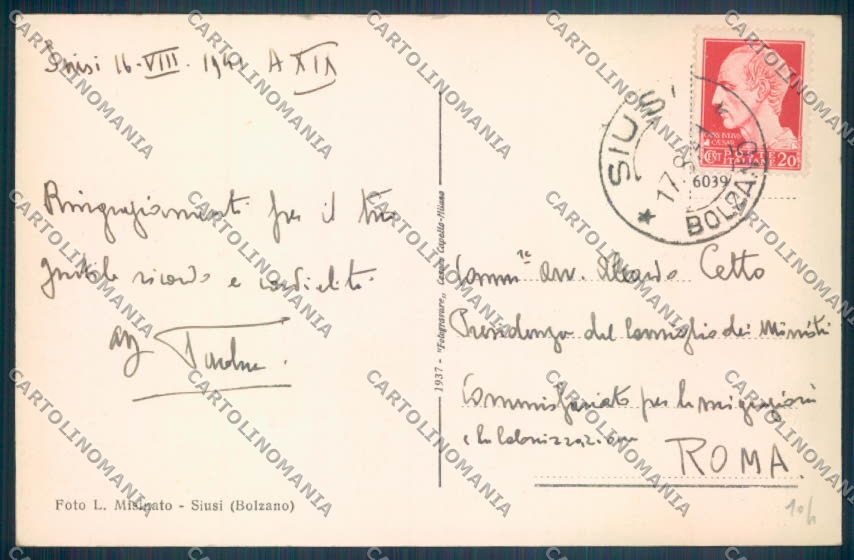 Siusi 16-VIII-1941 A XIX
Ringraziamenti per il tuo
gentile ricordo e cordialità.
Foto L. Misinato - Siusi (Bolzano)
1937 - "Fotogravure" Cesare Capello - Milano
SIUSI
17.8.41
BOLZANO
6039
CAIVS IVLIVS
CAESAR
CENT POSTE ITALIANE 20
Comm.re Avv. Cetto
Presidenza del Consiglio dei Ministri
Commissariato per le migrazioni
e la Colonizzazione
ROMA
CARTOLINOMANIA